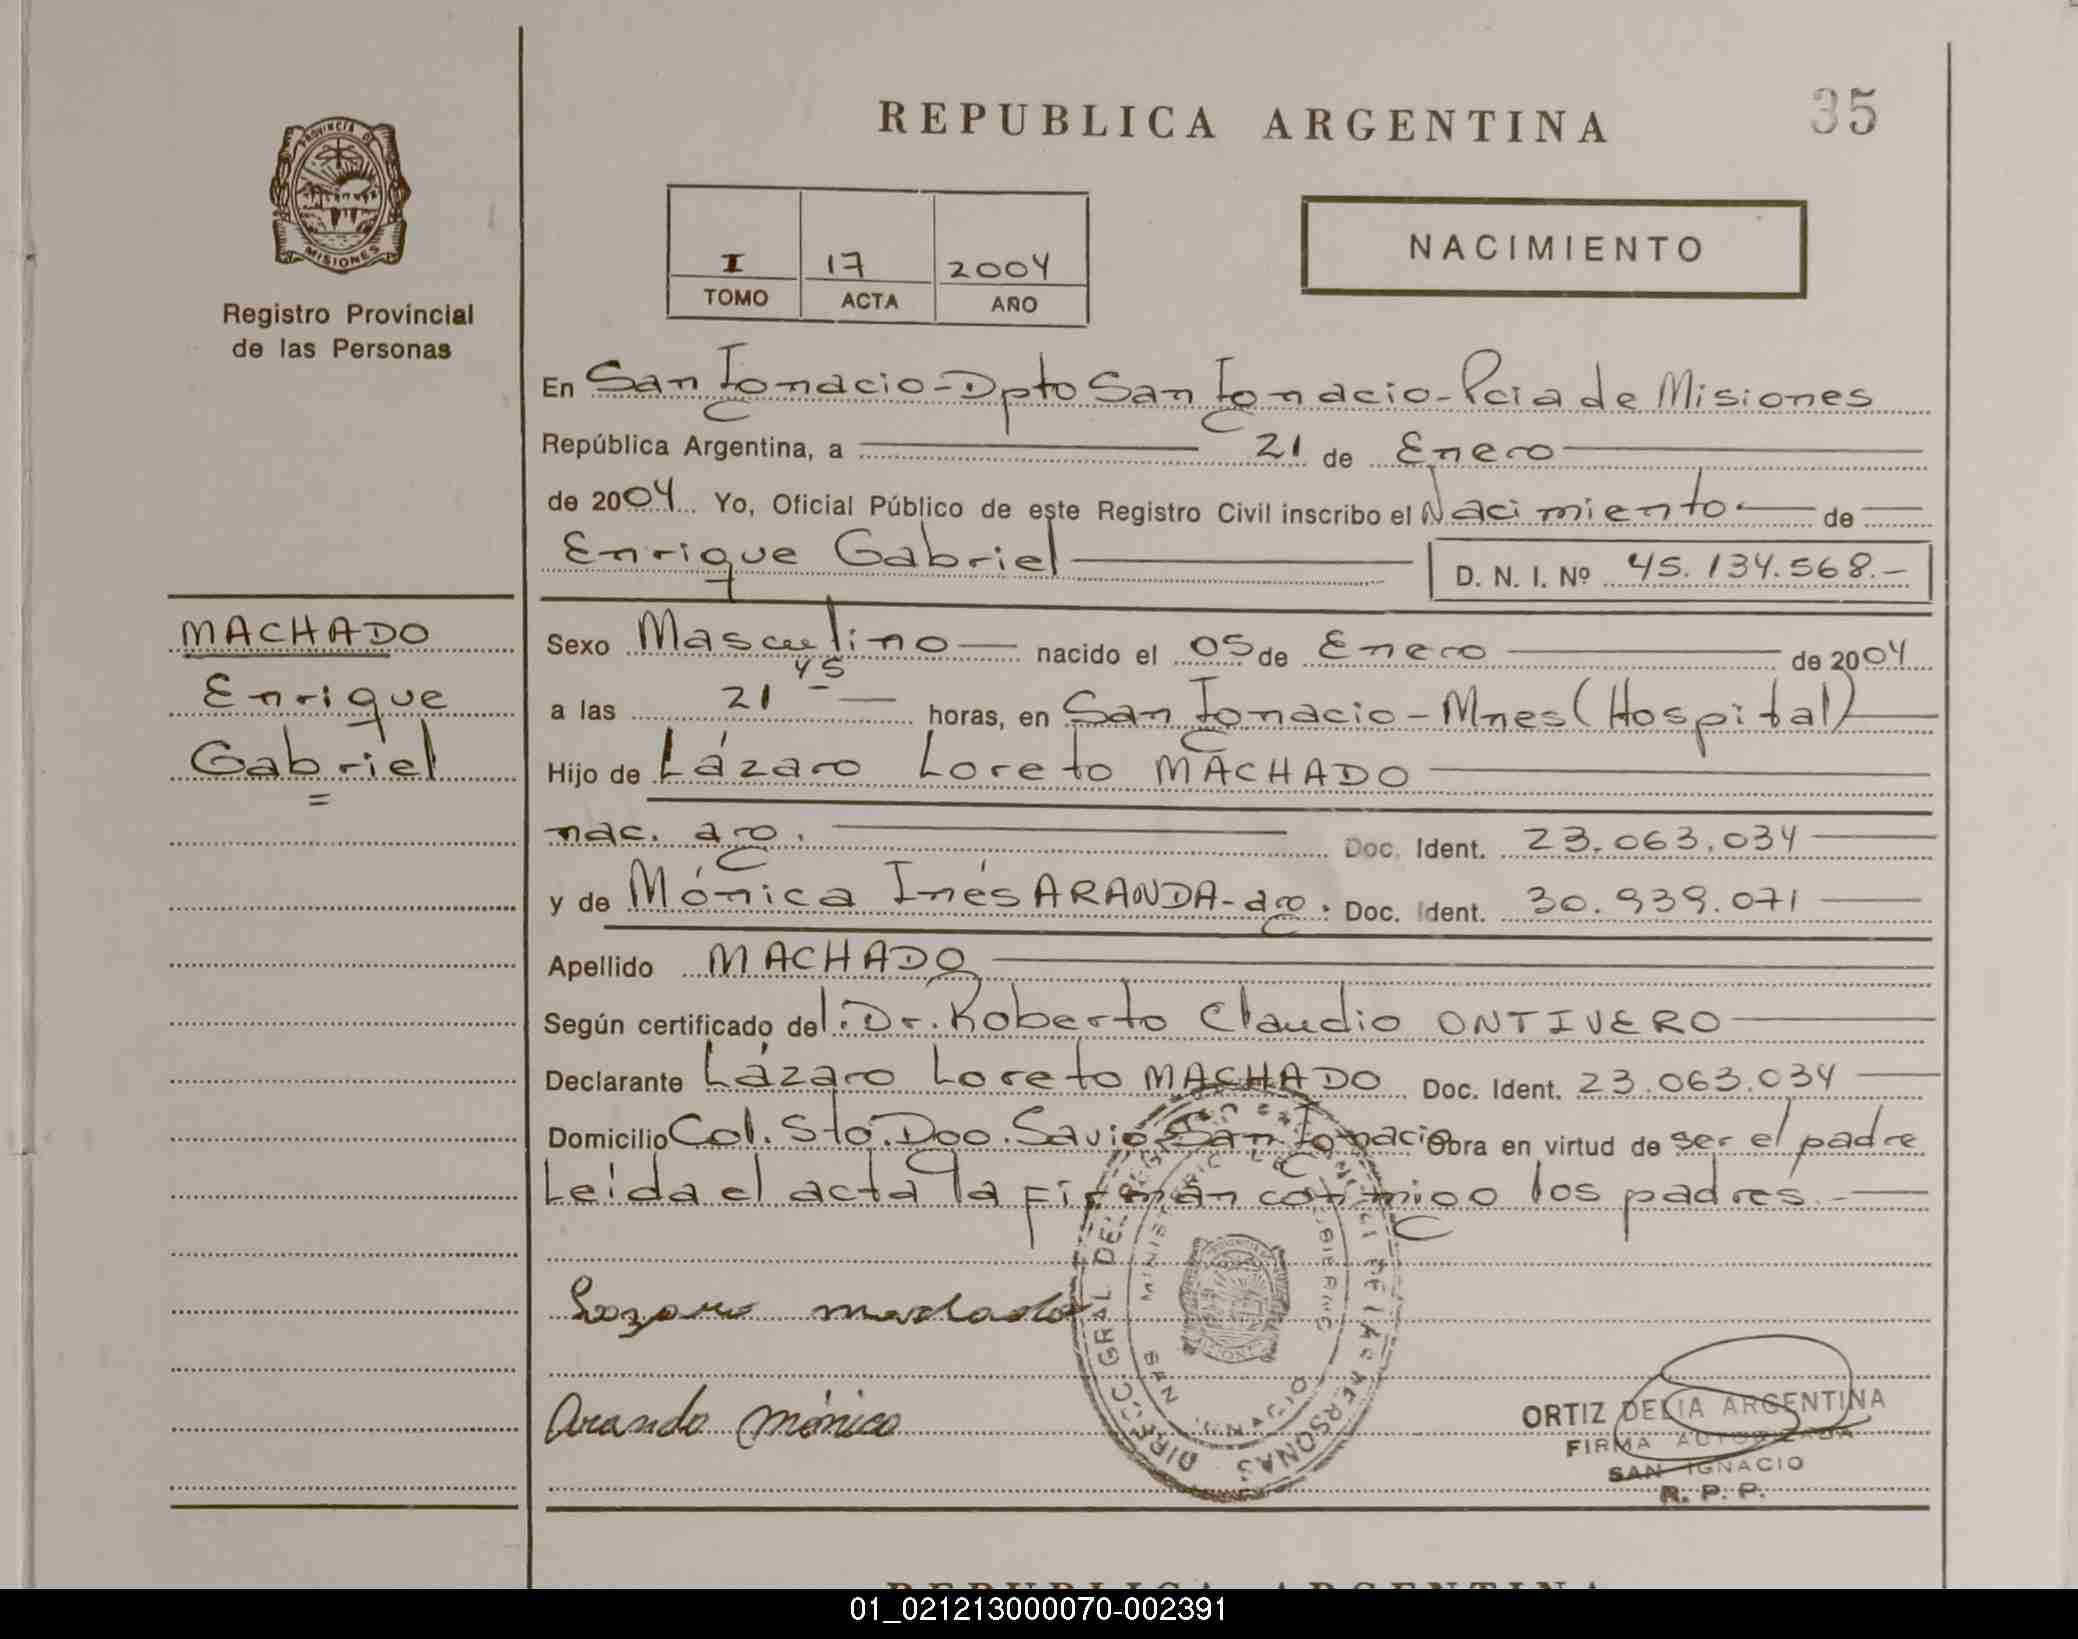 REPUBLICA ARGENTINA
35
PROVINCIA DE
MISIONES
Registro Provincial
de las Personas
I 17 2004
TOMO ACTA AÑO
NACIMIENTO
En San Ignacio-Dpto San Ignacio-Pcia de Misiones
República Argentina, a 21 de Enero
de 2004 Yo, Oficial Público de este Registro Civil inscribo el Nacimiento de
Enrique Gabriel
D. N. I. Nº 45.134.568.-
MACHADO
Enrique
Gabriel
=
Sexo Masculino nacido el 05 de Enero de 2004
a las 21 45 horas, en San Ignacio-Mnes (Hospital)
Hijo de Lázaro Loreto MACHADO
nac. arg. Doc. Ident. 23.063.034
y de Mónica Inés ARANDA-arg. Doc. Ident. 30.939.071
Apellido MACHADO
Según certificado del Dr. Roberto Claudio ONTIVERO
Declarante Lázaro Loreto MACHADO Doc. Ident. 23.063.034
Domicilio Col. Sto. Dgo. Savio San Ignacio Obra en virtud de ser el padre
Leida el acta la firman conmigo los padres.-
Lazaro machado
Aranda mónica
DIRECC GRAL DEL DE LAS PERSONAS
MINISTERIO DE GOBIERNO
SAN IGNACIO
ORTIZ DELIA ARGENTINA
FIRMA AUTORIZADA
SAN IGNACIO
R. P. P.
REPUBLICA ARGENTINA
01_021213000070-002391